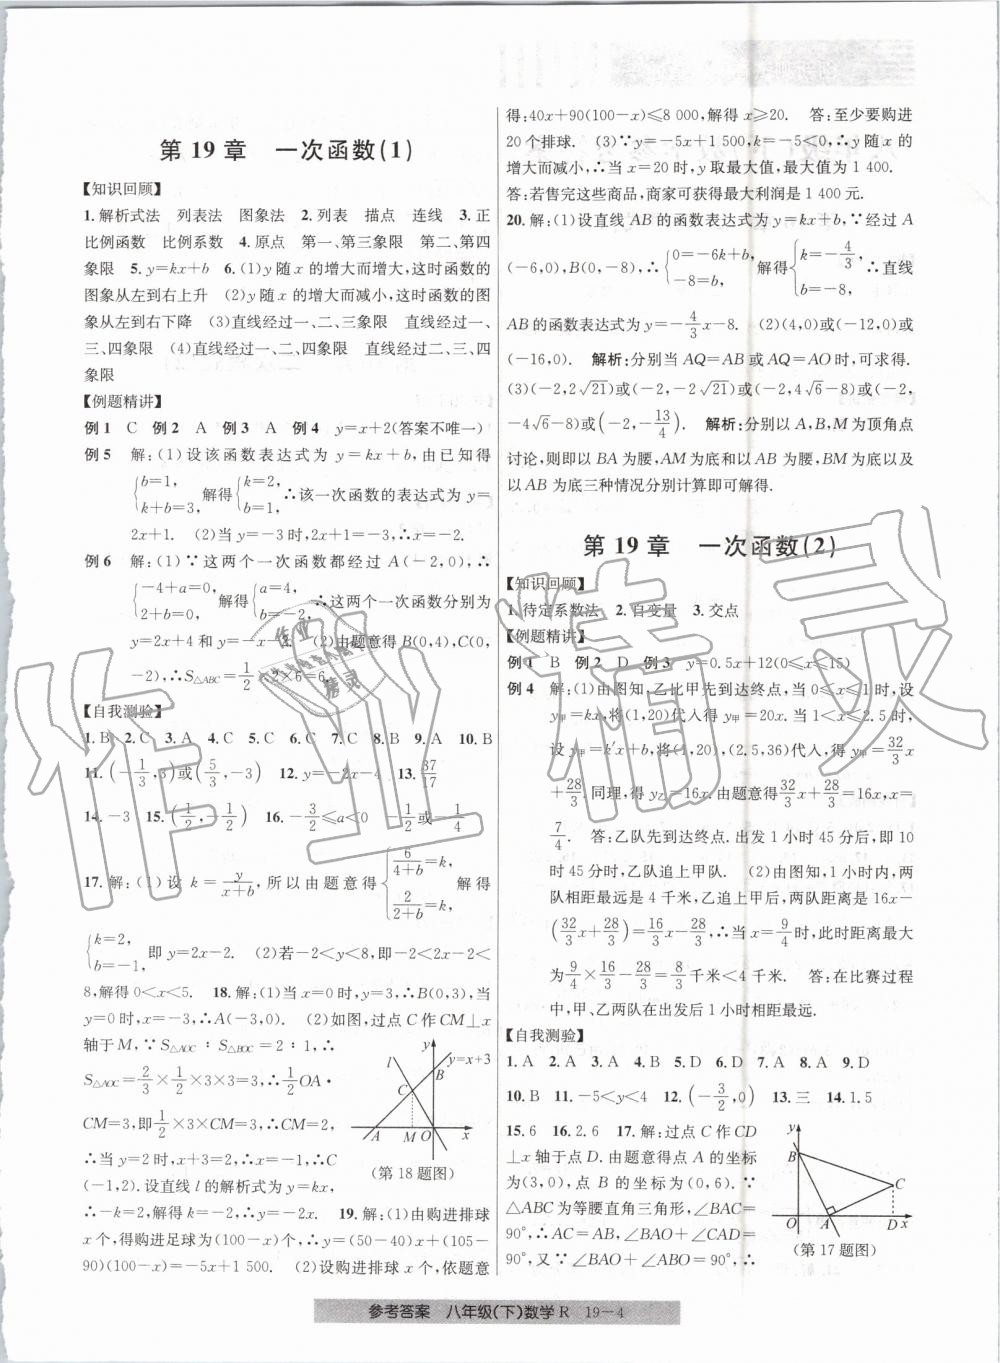 第 19 章　一次函数(1)
【知识回顾】
1. 解析式法　列表法　图象法　2. 列表　描点　连线　3. 正
比例函数　比例系数　4. 原点　第一、第三象限　第二、第四
象限　5. y=kx+b　6. (1)y 随 x 的增大而增大,这时函数的
图象从左到右上升　(2)y 随 x 的增大而减小,这时函数的图
象从左到右下降　(3)直线经过一、二、三象限　直线经过一、
三、四象限　(4)直线经过一、二、四象限　直线经过二、三、四
象限
【例题精讲】
例 1　C　例 2　A　例 3　A　例 4　y=x+2(答案不唯一)
例 5　解:(1)设该函数表达式为 y=kx+b,由已知得
{b=1, k+b=3, 解得{k=2, b=1, ∴该一次函数的表达式为 y=
2x+1.　(2)当 y=-3 时,2x+1=-3,∴x=-2.
例 6　解:(1)∵这两个一次函数都经过 A(-2,0),
∴{-4+a=0, 2+b=0, 解得{a=4, b=-2, ∴这两个一次函数分别为
y=2x+4 和 y=-x-2.　(2)由题意得 B(0,4),C(0,
-2),∴S△ABC=1/2×2×6=6.
【自我测验】
1. B　2. C　3. A　4. C　5. C　6. C　7. C　8. B　9. A　10. B
11. (-1/3,3)或(5/3,-3)　12. y=-2x-4　13. 37/17
14. -3　15. (1/2,-1/2)　16. -3/2≤a<0　-1/2或-1/4
17. 解:(1)设 k=y/(x+b),所以由题意得{6/(4+b)=k, 2/(2+b)=k, 解得
{k=2, b=-1, 即 y=2x-2.　(2)若-2<y<8,即-2<2x-2<
8,解得 0<x<5.　18. 解:(1)当 x=0 时,y=3,∴B(0,3),当
y=0 时,x=-3,∴A(-3,0).　(2)如图,过点 C 作 CM⊥x
轴于 M,∵S△AOC∶S△BOC=2∶1,∴
S△AOC=2/3×1/2×3×3=3,∴1/2OA·
CM=3,即1/2×3×CM=3,∴CM=2,
∴当 y=2 时,x+3=2,∴x=-1,∴C
(-1,2).设直线 l 的解析式为 y=kx,
∴-k=2,解得 k=-2.　19. 解:(1)由购进排球
x 个,得购进足球为(100-x)个,∴y=(50-40)x+(105-
90)(100-x)=-5x+1 500.　(2)设购进排球 x 个,依题意
l
y
y=x+3
B
C
A
M
O
x
(第 18 题图)
得:40x+90(100-x)≤8 000,解得 x≥20.　答:至少要购进
20 个排球.　(3)∵y=-5x+1 500,k=-5<0,∴y 随 x 的
增大而减小,∴当 x=20 时,y 取最大值,最大值为 1 400.
答:若售完这些商品,商家可获得最大利润是 1 400 元.
20. 解:(1)设直线 AB 的函数表达式为 y=kx+b,∵经过 A
(-6,0),B(0,-8),∴{0=-6k+b, -8=b, 解得{k=-4/3, b=-8, ∴直线
AB 的函数表达式为 y=-4/3x-8.　(2)(4,0)或(-12,0)或
(-16,0).　解析:分别当 AQ=AB 或 AQ=AO 时,可求得.
(3)(-2,2√21)或(-2,-2√21)或(-2,4√6-8)或(-2,
-4√6-8)或(-2,-13/4).　解析:分别以 A,B,M 为顶角点
讨论,则即以 BA 为腰,AM 为底和以 AB 为腰,BM 为底以及
以 AB 为底三种情况分别计算即可解得.
第 19 章　一次函数(2)
【知识回顾】
1. 待定系数法　2. 自变量　3. 交点
【例题精讲】
例 1　B　例 2　D　例 3　y=0.5x+12(0≤x≤15)
例 4　解:(1)由图知,乙比甲先到达终点,当 0≤x≤1 时,设
y甲=kx,将(1,20)代入得 y甲=20x.当 1<x≤2.5 时,
设 y甲=k′x+b,将(1,20),(2.5,36)代入,得 y甲=32/3x
+28/3.同理,得 y乙=16x.由题意得32/3x+28/3=16x,x=
7/4.　答:乙队先到达终点.出发 1 小时 45 分后,即 10
时 45 分时,乙队追上甲队.　(2)由图知,1 小时内,两
队相距最远是 4 千米,乙追上甲后,两队距离是 16x-
(32/3x+28/3)=16/3x-28/3,∴当 x=9/4时,此时距离最大
为9/4×16/3-28/3=8/3千米<4 千米.　答:在比赛过程
中,甲、乙两队在出发后 1 小时相距最远.
【自我测验】
1. A　2. A　3. A　4. B　5. D　6. D　7. D　8. A　9. D
10. B　11. -5<y<4　12. (-3/2,0)　13. 三　14. 1.5
15. 6　16. 2.6　17. 解:过点 C 作 CD
⊥x 轴于点 D.由题意得点 A 的坐标
为(3,0),点 B 的坐标为(0,6).∵
△ABC 为等腰直角三角形,∠BAC=
90°,∴AC=AB,∠BAO+∠CAD=
90°,又∵∠BAO+∠ABO=90°,∴
y
B
C
O
A
D
x
(第 17 题图)
参考答案　八年级(下)数学 R　19-4
作业精灵
作业
精灵